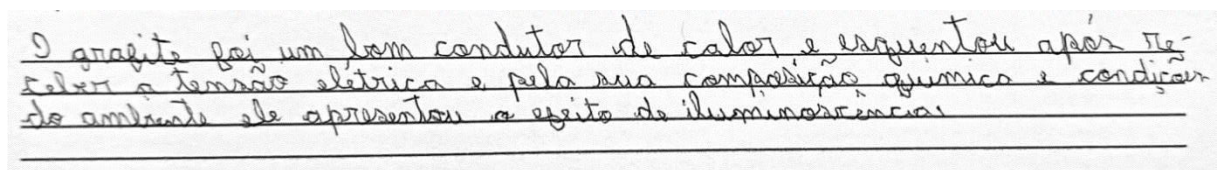 O grafite foi um bom condutor de calor e esquentou após re-
ceber a tensão elétrica e pela sua composição química e condições
do ambiente ele apresentou o efeito de iluminoscência